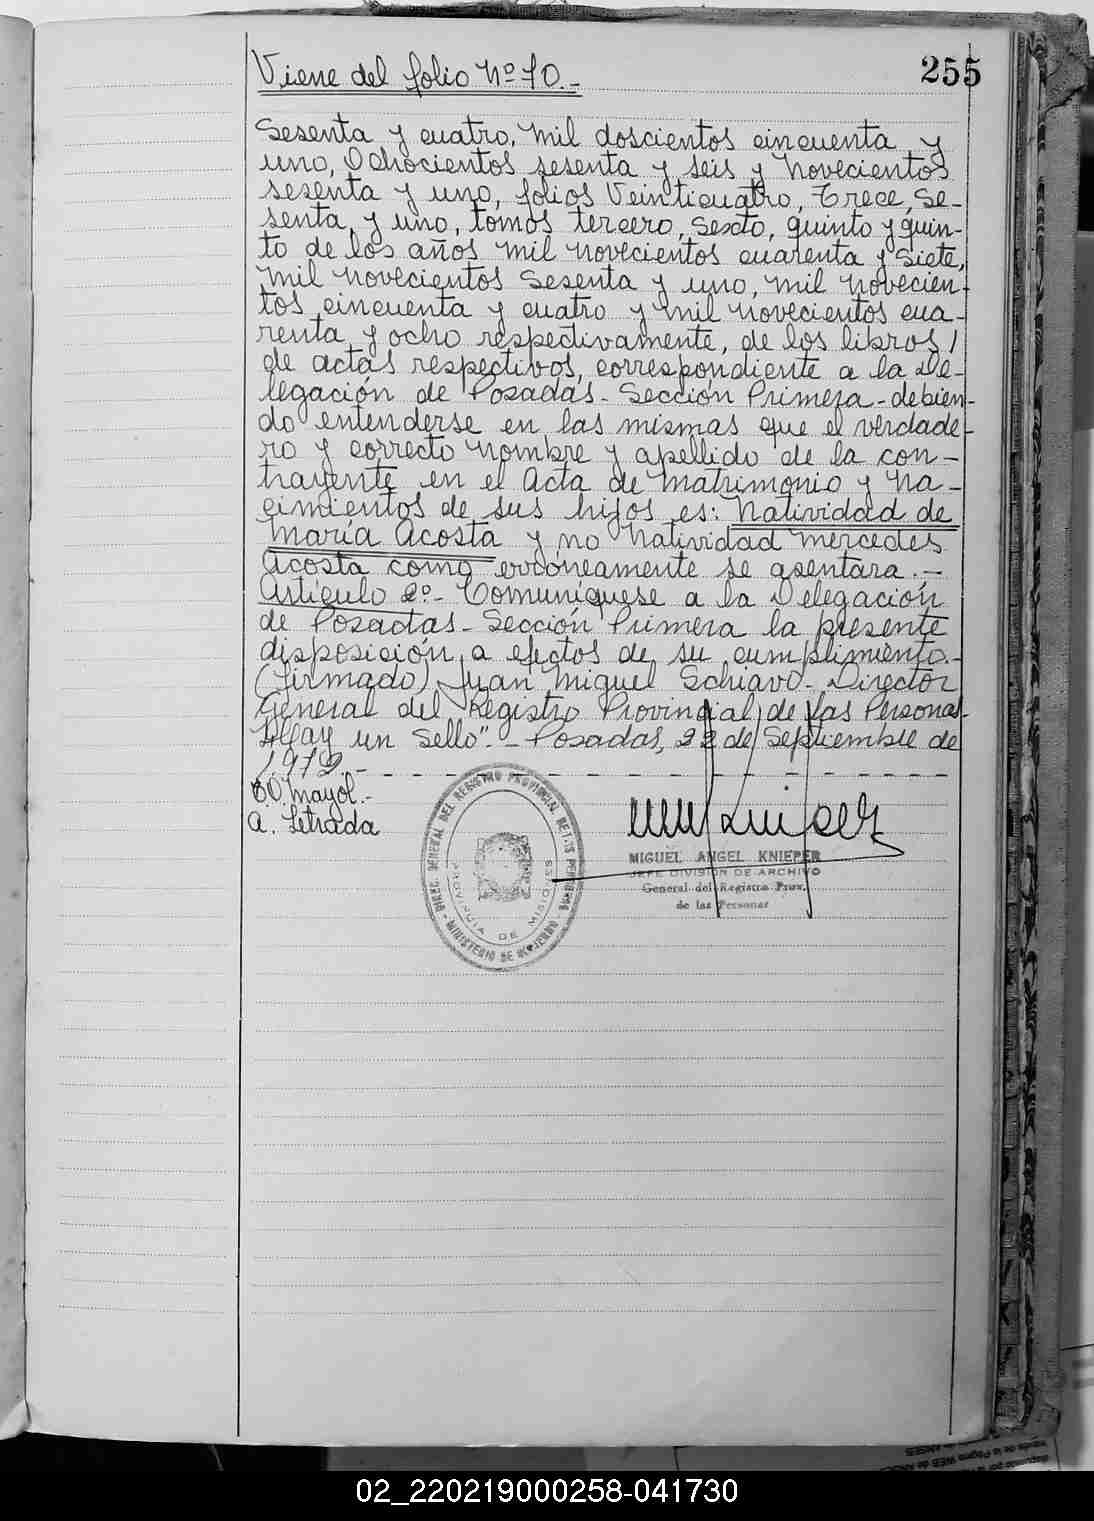 255
Viene del folio Nº 70.-
Sesenta y cuatro, mil doscientos cincuenta y
uno, Ochocientos sesenta y seis y Novecientos
sesenta y uno, folios Veinticuatro, Trece, Se-
senta y uno, tomos tercero, sexto, quinto y quin-
to de los años mil novecientos cuarenta y siete,
mil novecientos sesenta y uno, mil novecien-
tos cincuenta y cuatro y mil novecientos cua-
renta y ocho respectivamente, de los libros /
de actas respectivos, correspondiente a la De-
legación de Posadas - Sección Primera - debien-
do entenderse en las mismas que el verdade-
ro y correcto nombre y apellido de la con-
trayente en el Acta de matrimonio y na-
cimientos de sus hijos es: Natividad de
María Acosta y no Natividad Mercedes
Acosta como erróneamente se asentara.-
Artículo 2º.- Comuníquese a la Delegación
de Posadas - Sección Primera la presente
disposición a efectos de su cumplimiento.-
(Firmado) Juan Miguel Schiavo - Director
General del Registro Provincial de las Personas-
Hay un Sello".- Posadas, 22 de Septiembre de
1972 - - - - - - - - - - - - - - - - - -
O. Mayol.-
A. Letrada
DIREC. GENERAL DEL REGISTRO PROVINCIAL DE LAS PERSONAS
PROVINCIA DE MISIONES
MINISTERIO DE GOBIERNO
MIGUEL ANGEL KNIEPER
JEFE DIVISION DE ARCHIVO
General del Registro Prov.
de las Personas
02_220219000258-041730